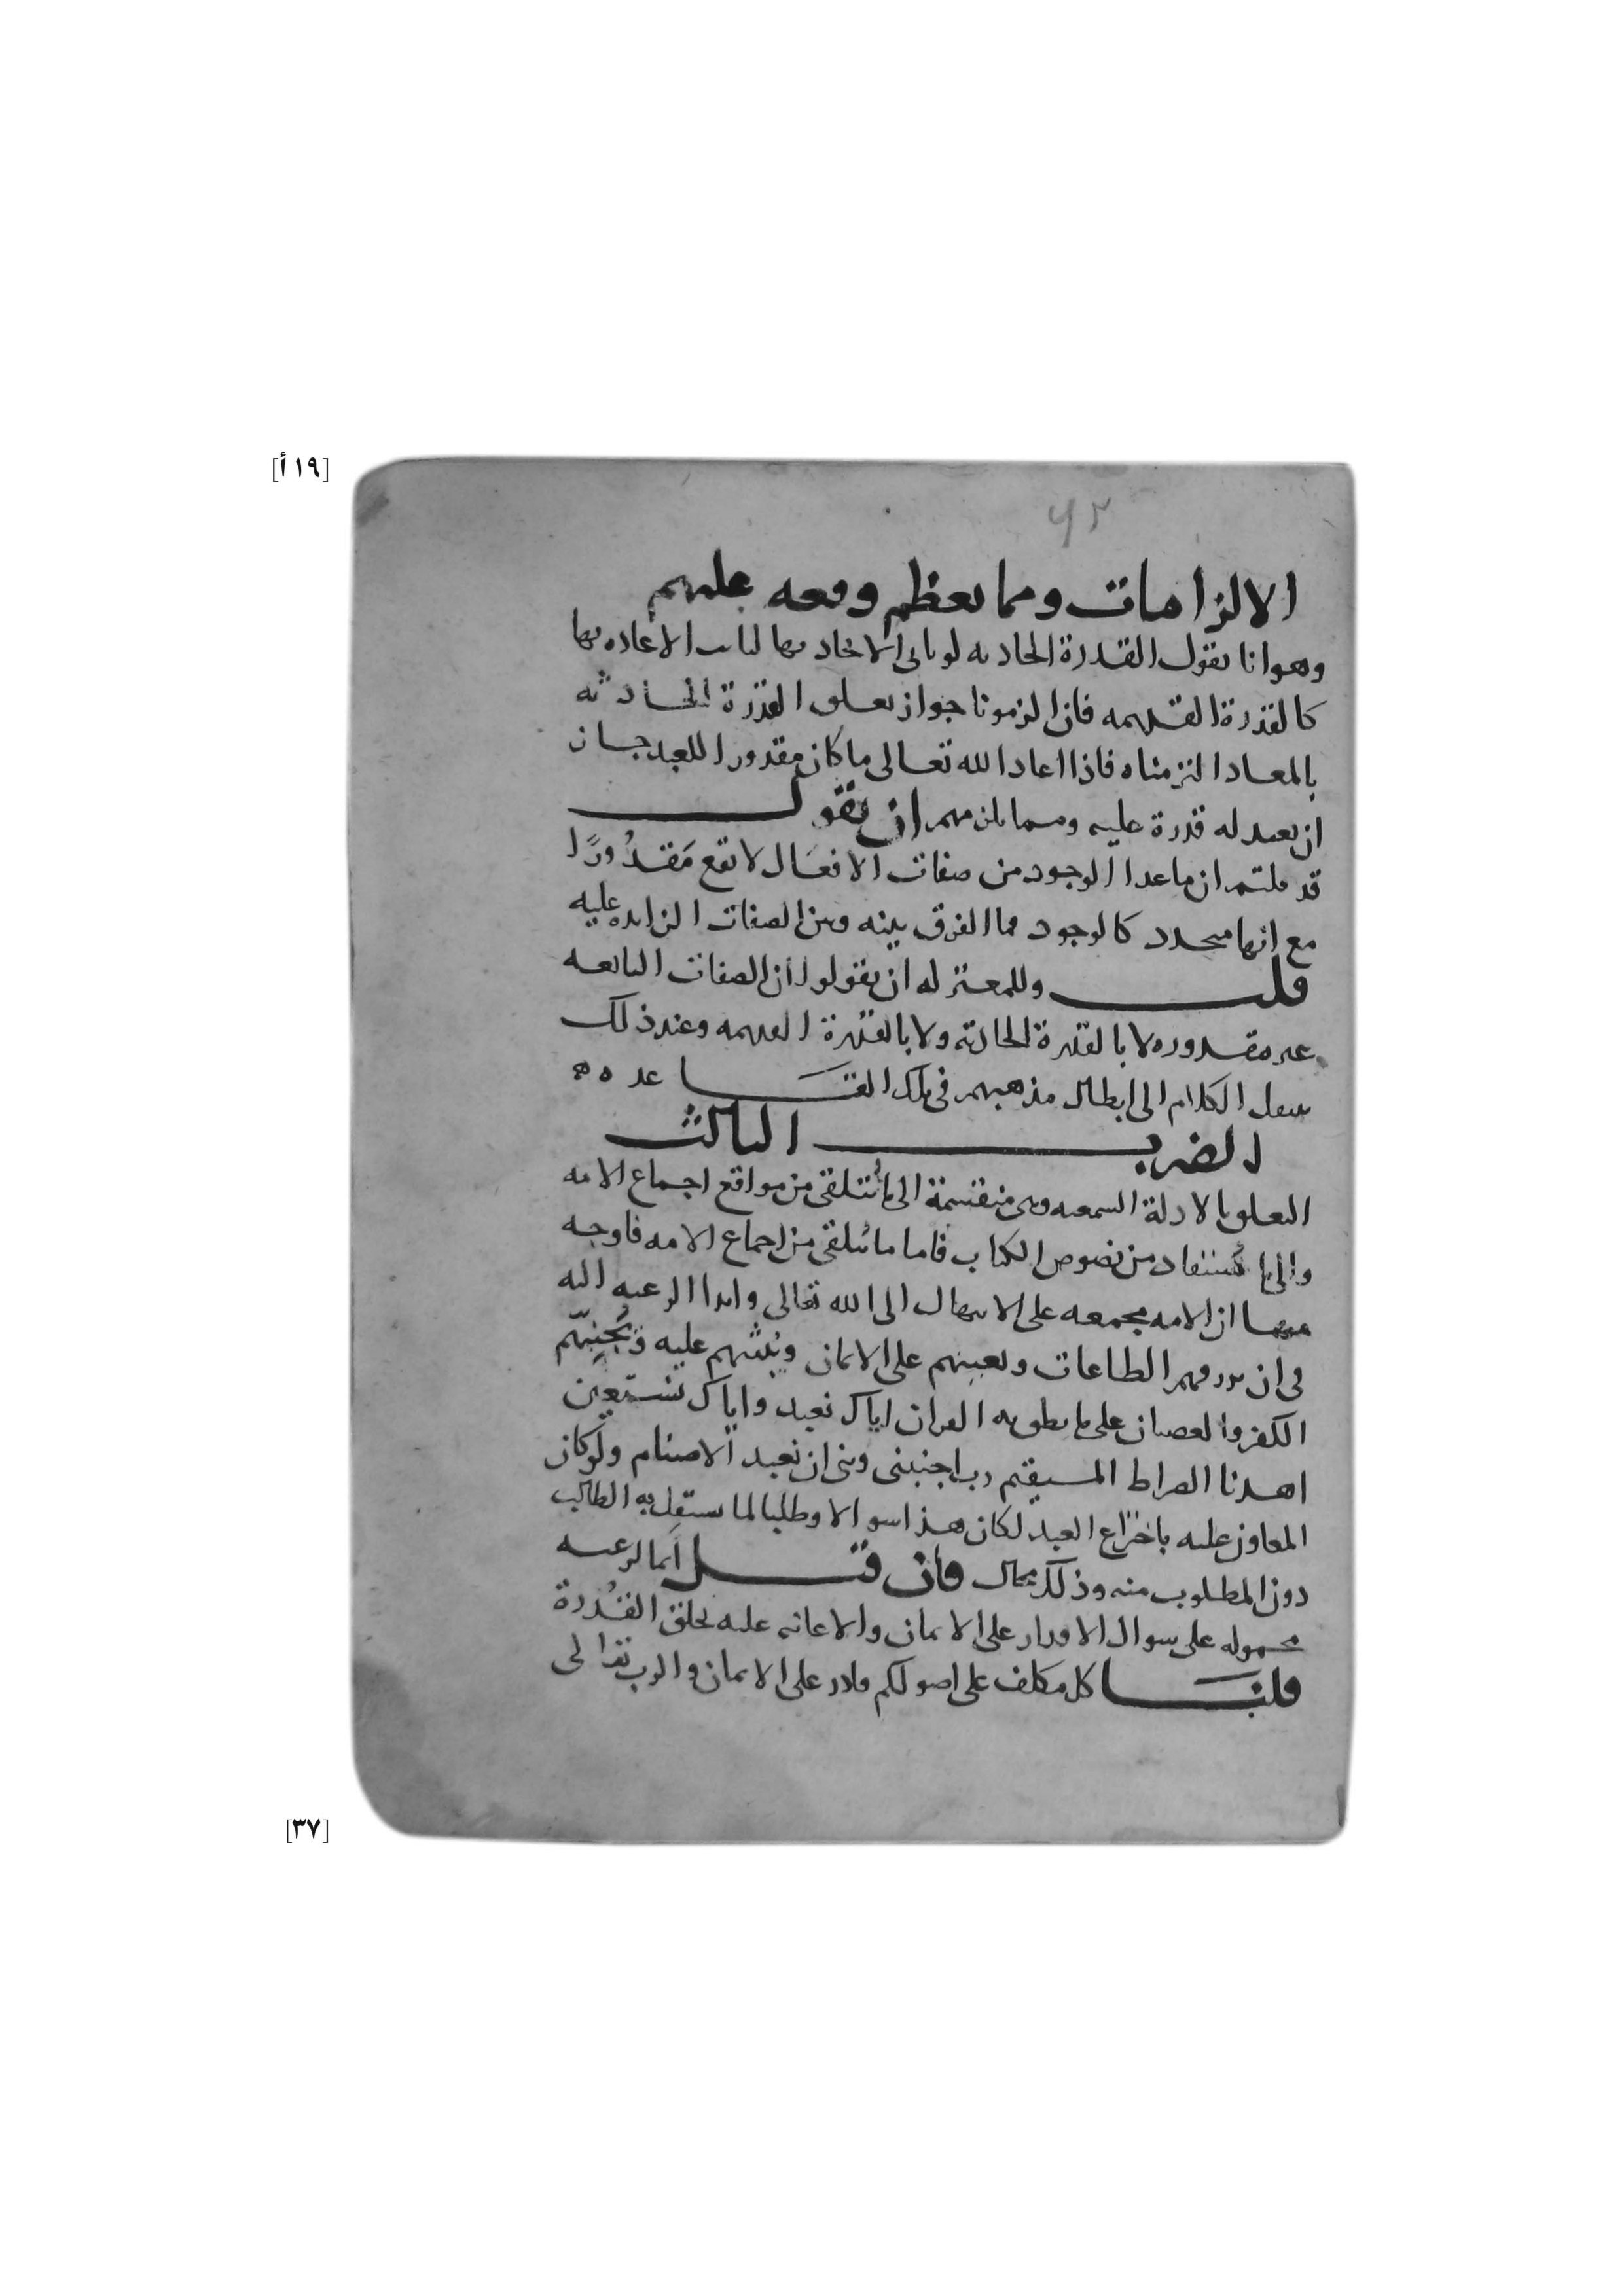 [١٩ أ]
٤٢
الالزامات ومما يعظم وقعه عليهم
وهو انا نقول القدرة الحادثه لو تأتى الايجاد بها لتأتت الاعاده بها
كالقدرة القديمه فان الزمونا جواز تعلق القدرة الحادثه
بالمعاد التزمناه فاذا اعاد الله تعالى ما كان مقدورا للعبد جاز
ان يعيد له قدرة عليه ومما يلزمهم ان نقول
قد قلتم ان ما عدا الوجود من صفات الافعال لا تقع مَقدُورًا
مع انها متجدد كالوجود فما الفرق بينه وبين الصفات الزايده عليه
قلت وللمعتزله ان يقولوا أن الصفات التابعه
غير مقدوره لا بالقدرة الحادثة ولا بالقدرة القديمه وعند ذلك
ينقل الكلام الى ابطال مذهبهم في تلك القاعده
الضرب الثالث
التعلق بالادلة السمعيه وهى منقسمة الى ما تتلقى من مواقع اجماع الامه
والى ما يُستفاد من نصوص الكتاب فاما ما يُتلقى من اجماع الامه فاوجه
منهما ان الامه مجمعه على الابتهال الى الله تعالى وابدا الرغبه اليه
فى ان يرزقهم الطاعات ويعينهم على الايمان ويُثبتهم عليه ويُجنِبّهم
الكفر والعصيان على ما نطق به القران اياك نعبد واياك نستعين
اهدنا الصراط المسيقتم رب اجنبنى وبنى ان نعبد الاصنام ولو كان
المعاون عليه باختراع العبد لكان هذا سوالا وطلبا لما يستقل به الطالب
دون المطلوب منه وذلك محال فان قيل انما الرغبه
محموله على سوال الاقدار على الايمان والاعانه عليه بخلق القُدرة
قلنا كل مكلف على اصولكم قادر على الايمان والرب تعالى
[٣٧]